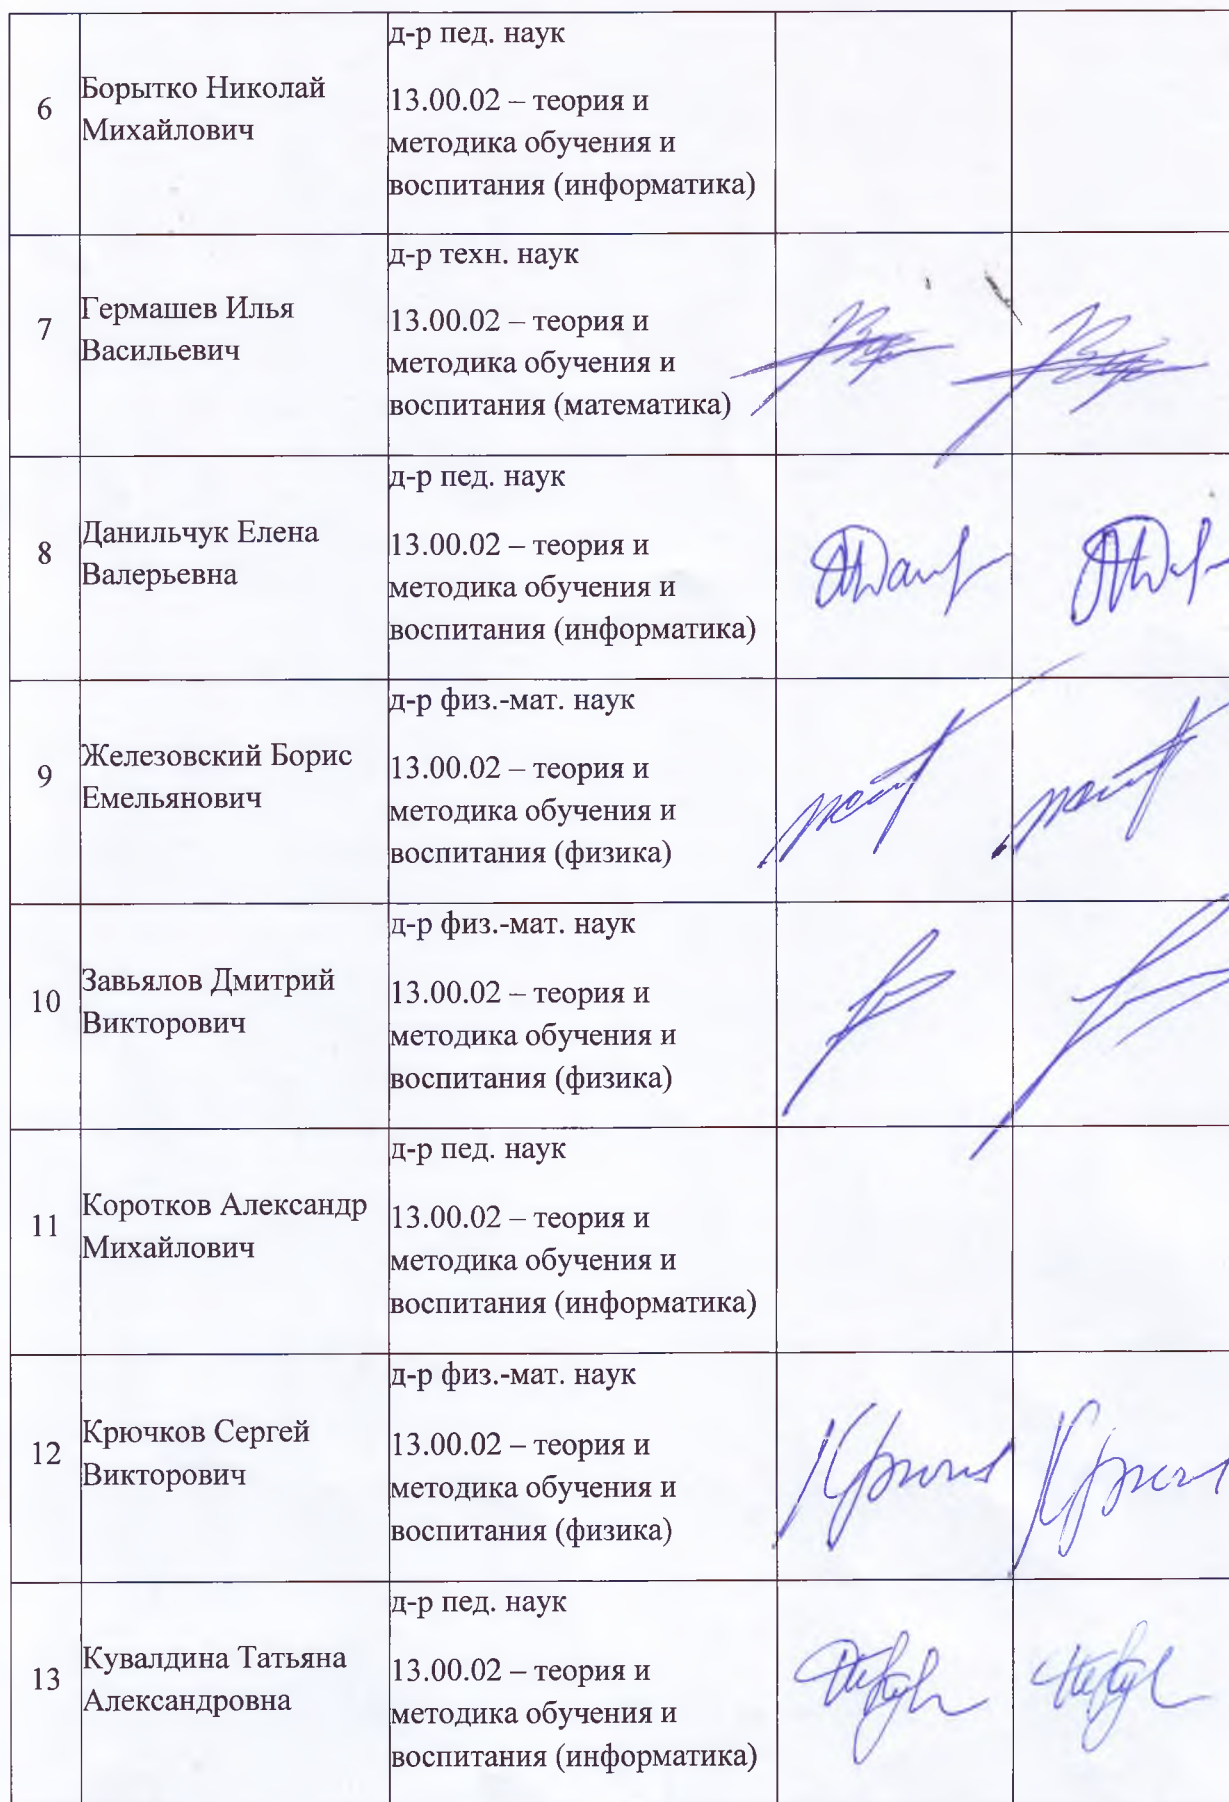 6
Борытко Николай
Михайлович
д-р пед. наук
13.00.02 – теория и
методика обучения и
воспитания (информатика)
7
Гермашев Илья
Васильевич
д-р техн. наук
13.00.02 – теория и
методика обучения и
воспитания (математика)
8
Данильчук Елена
Валерьевна
д-р пед. наук
13.00.02 – теория и
методика обучения и
воспитания (информатика)
9
Железовский Борис
Емельянович
д-р физ.-мат. наук
13.00.02 – теория и
методика обучения и
воспитания (физика)
10
Завьялов Дмитрий
Викторович
д-р физ.-мат. наук
13.00.02 – теория и
методика обучения и
воспитания (физика)
11
Коротков Александр
Михайлович
д-р пед. наук
13.00.02 – теория и
методика обучения и
воспитания (информатика)
12
Крючков Сергей
Викторович
д-р физ.-мат. наук
13.00.02 – теория и
методика обучения и
воспитания (физика)
13
Кувалдина Татьяна
Александровна
д-р пед. наук
13.00.02 – теория и
методика обучения и
воспитания (информатика)